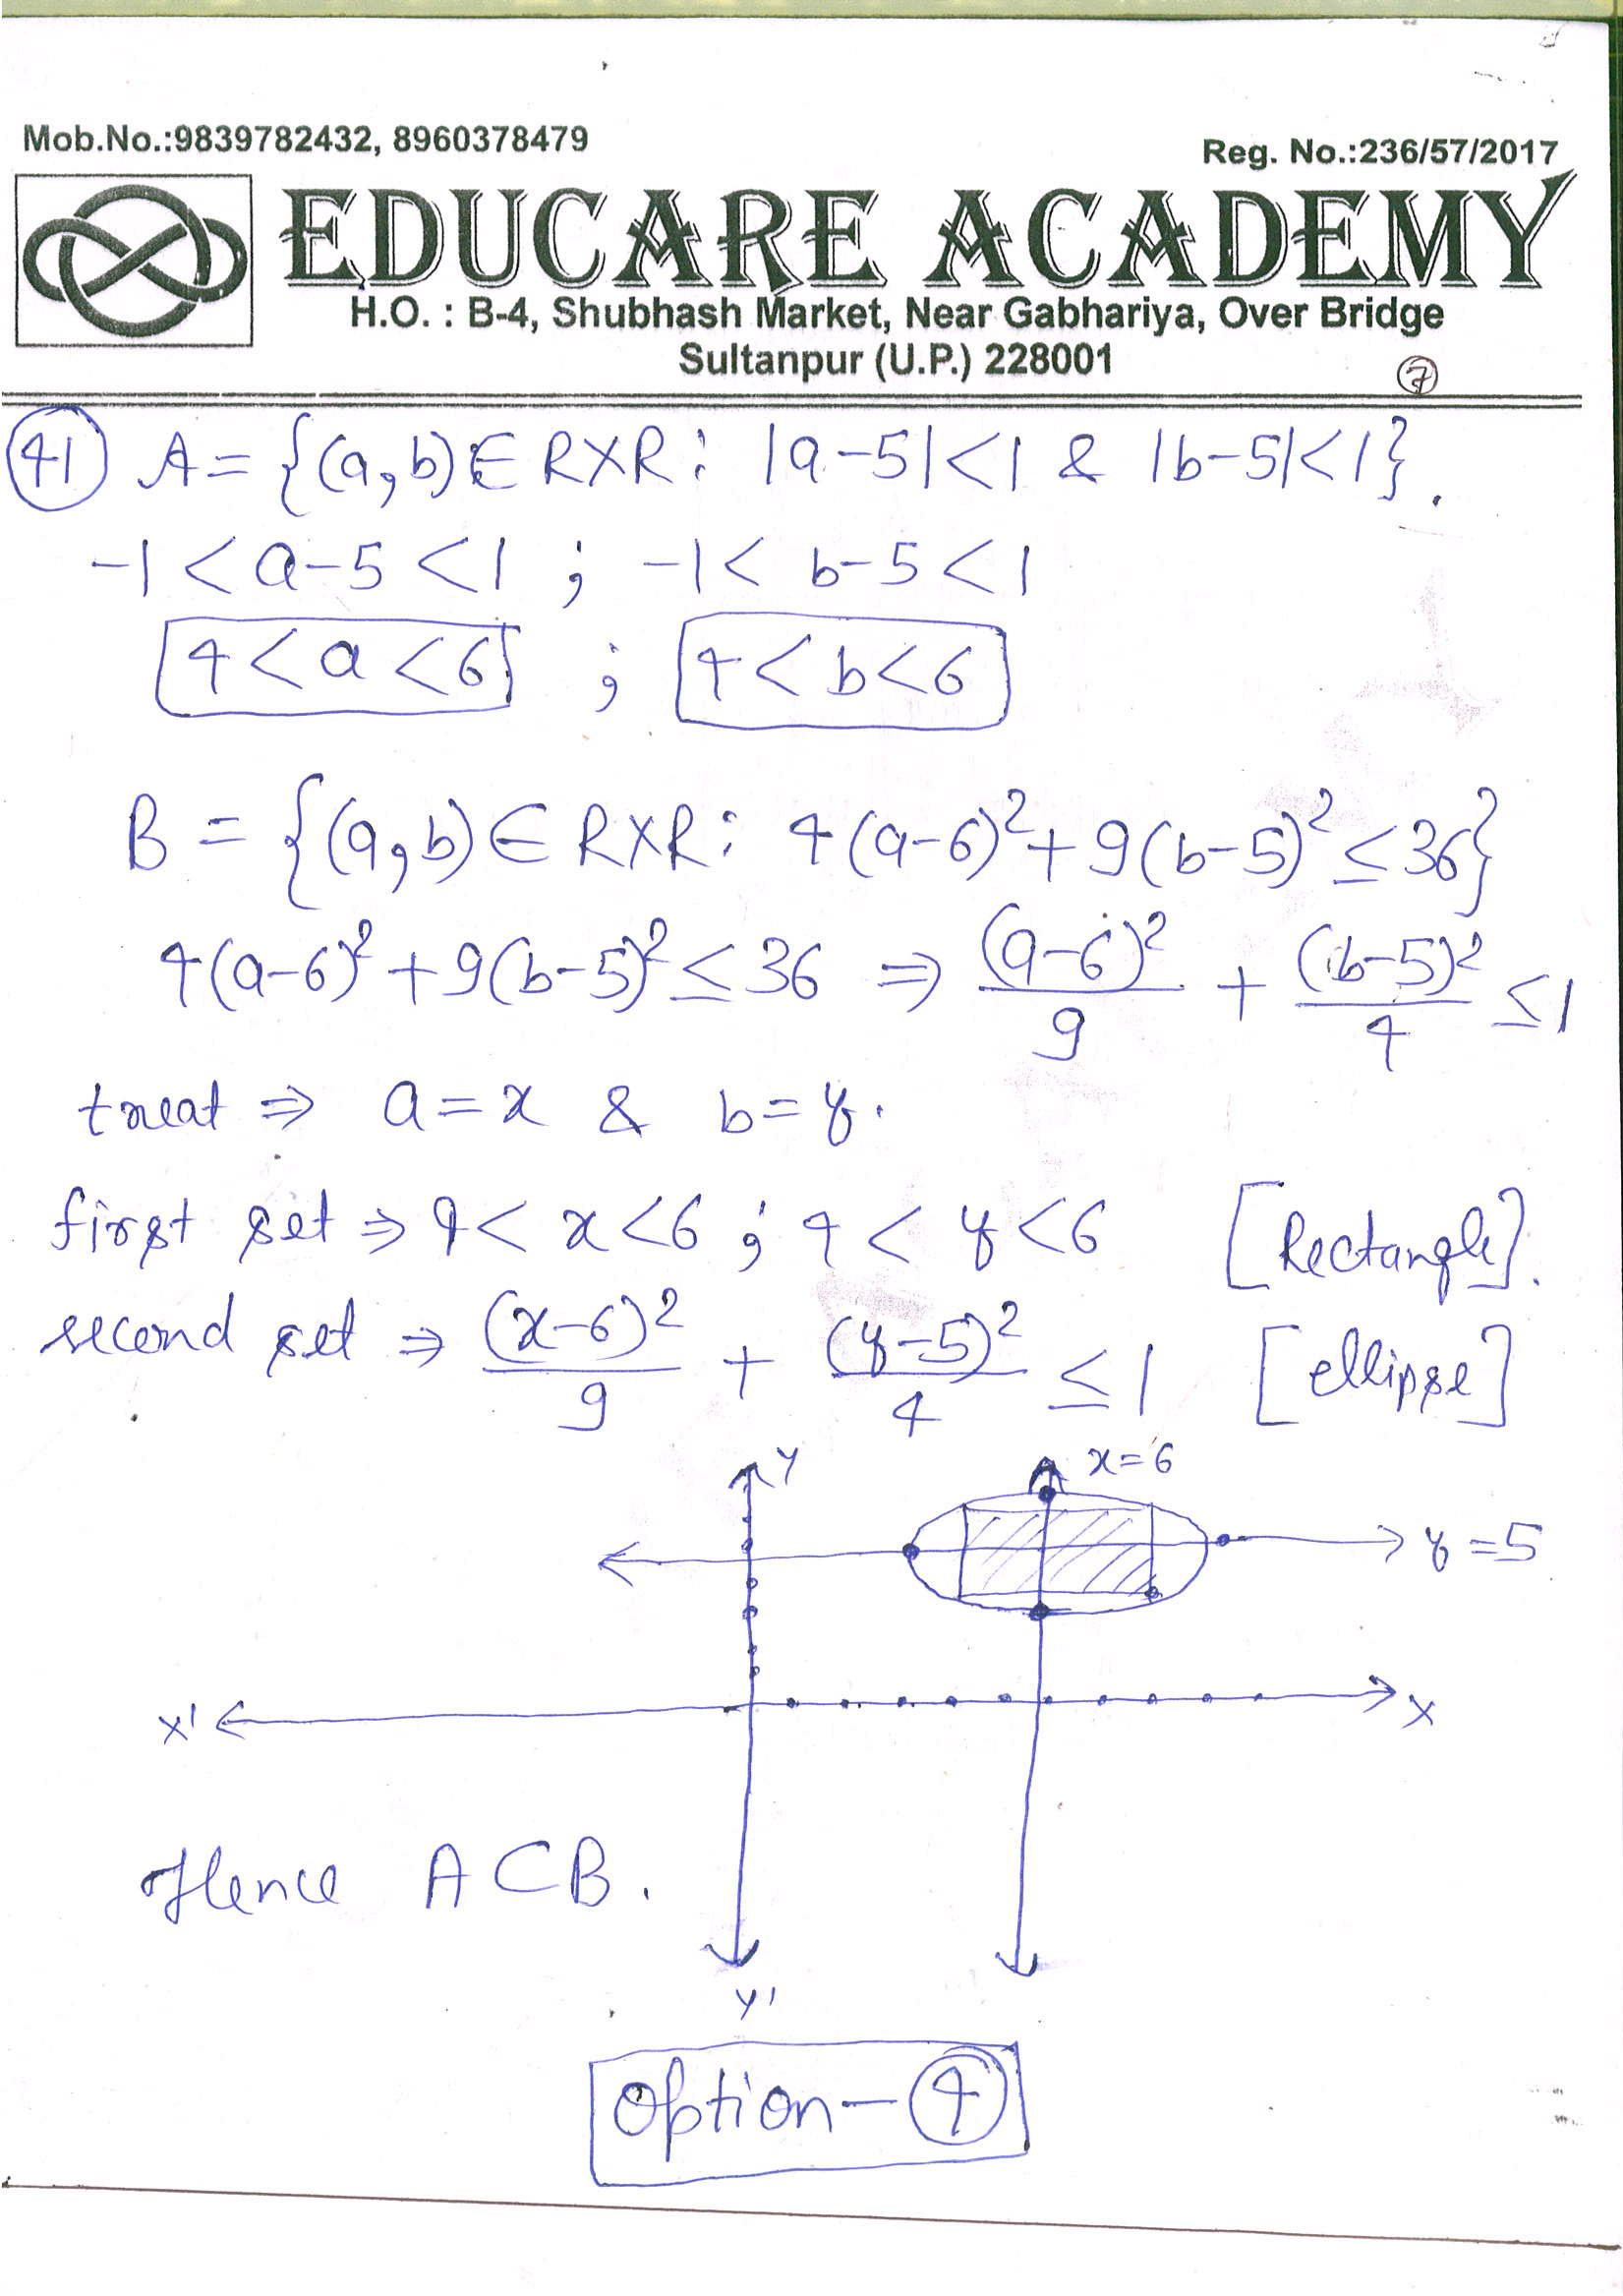 Mob.No.:9839782432, 8960378479
Reg. No.:236/57/2017
EDUCARE ACADEMY
H.O. : B-4, Shubhash Market, Near Gabhariya, Over Bridge
Sultanpur (U.P.) 228001
7
41 A = {(a,b) ∈ R×R : |a-5|<1 & |b-5|<1}.
-1 < a-5 < 1 ; -1 < b-5 < 1
4 < a < 6 ; 4 < b < 6
B = {(a,b) ∈ R×R : 4(a-6)² + 9(b-5)² ≤ 36}
4(a-6)² + 9(b-5)² ≤ 36 ⇒ (a-6)²/9 + (b-5)²/4 ≤ 1
treat ⇒ a = x & b = y.
first set ⇒ 4 < x < 6 ; 4 < y < 6 [Rectangle].
second set ⇒ (x-6)²/9 + (y-5)²/4 ≤ 1 [ellipse]
Y
x=6
y=5
X'
X
Hence A⊂B.
Y'
Option-4